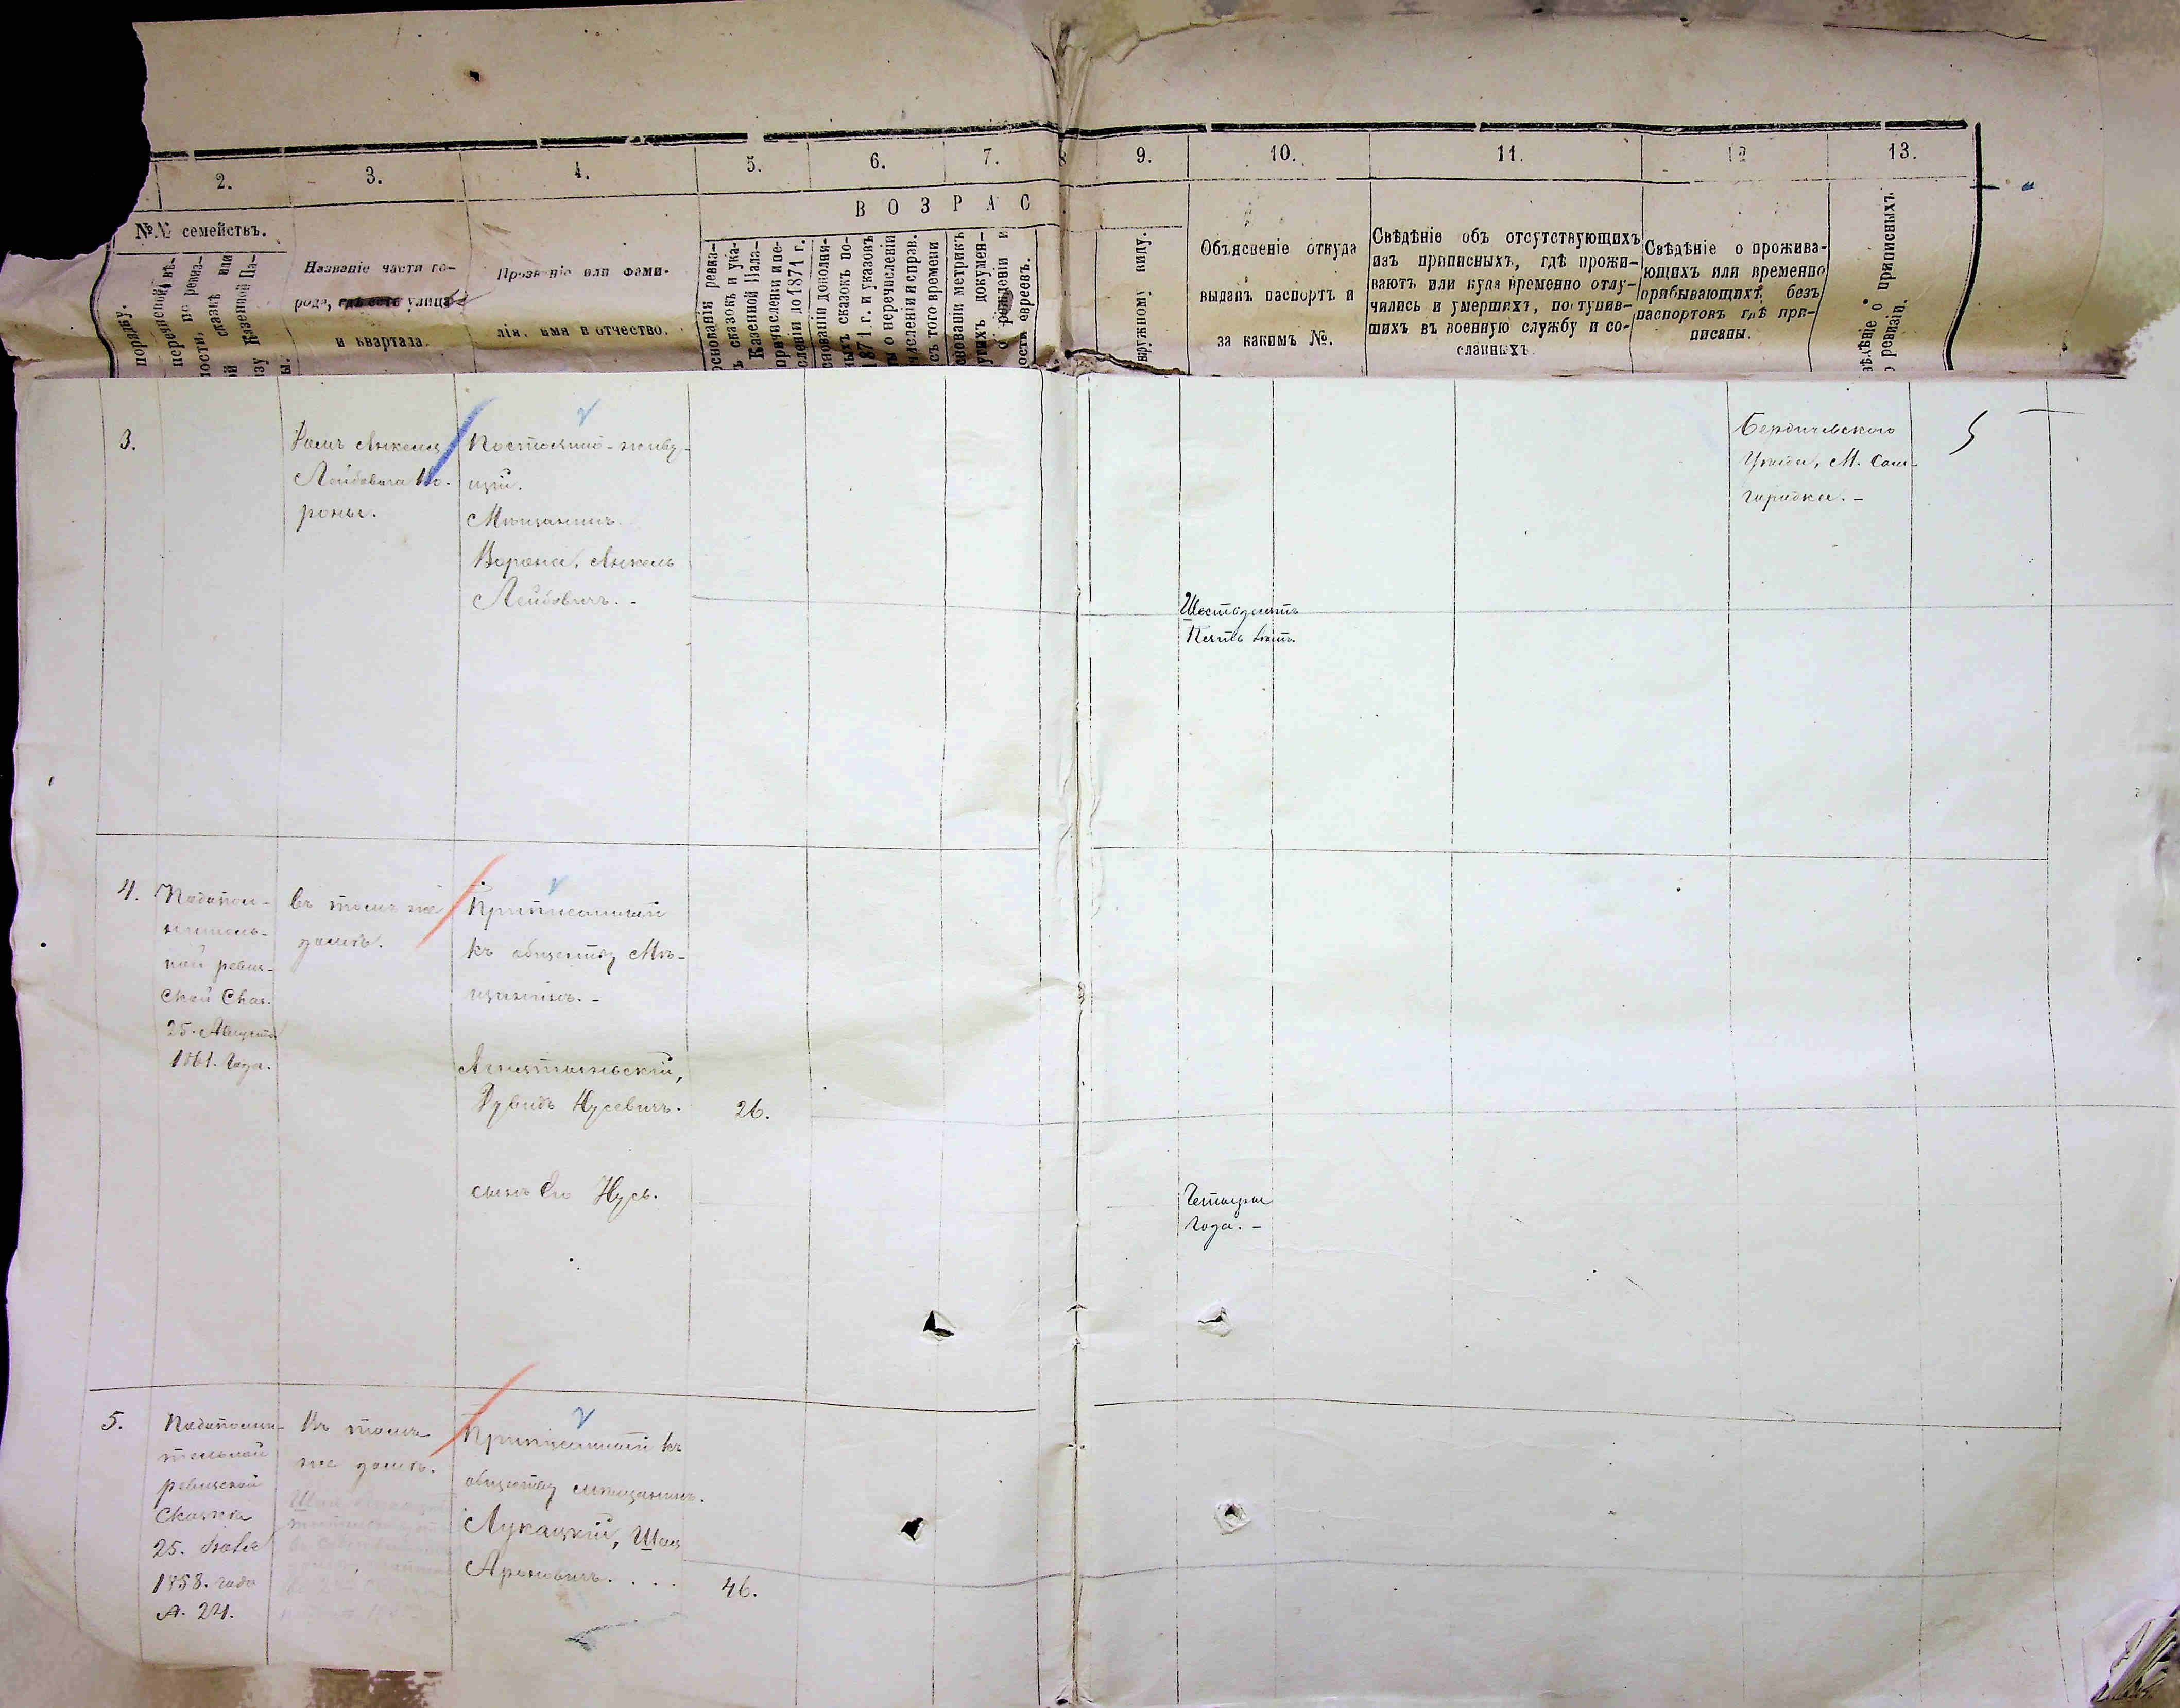 2.
3.
4.
5.
6.
7.
8
9.
10.
11.
12
13.
В О З Р А С
№№ семействъ.
порядку.
перечисленной вѣ-
по ревиз-
сказкѣ или
Казенной Па-
Названіе части го-
рода, гдѣ есть улица
и квартала.
Прозваніе или фами-
лія, имя и отчество.
основаніи ревиз-
сказокъ и ука-
Казенной Пала-
причисленіи и пе-
сленіи до 1871 г.
нованіи дополни-
ныхъ сказокъ по-
1871 г. и указовъ
ты о перечисленіи
численіи и справ.
съ того времени
нованіи метрикъ
угихъ докумен-
о рожденіи и
ости евреевъ.
наружному виду.
Объясненіе откуда
выданъ паспортъ и
за какимъ №.
Свѣдѣніе объ отсутствующихъ
изъ приписныхъ, гдѣ прожи-
ваютъ или куда временно отлу-
чились и умершихъ, поступив-
шихъ въ военную службу и со-
сланныхъ.
Свѣдѣніе о прожива-
ющихъ или временно
прибывающихъ безъ
паспортовъ гдѣ при-
писаны.
свѣдѣніе о приписныхъ
ревизіи.
3.
Домъ Янкеля
Лейбовича Во-
роны.
Постоянно-живу-
щій.
Мѣщанинъ.
Ворона, Янкель
Лейбовичъ. -
Шестьдесятъ
Пять лѣтъ.
Бердичевского
Уѣзда, М. Сам-
городка. -
4.
Въ томъ же
домѣ.
Приписанный
къ обществу Мѣ-
щанинъ. -
25. Августа
1861. года.
Дувидъ Нусевичъ.
26.
сынъ Его Нусь.
Четыре
года. -
5.
ревизской
Сказки
25. Іюля
1858. года
Въ томъ
же домѣ.
Приписанный къ
обществу мѣщанинъ.
Лукацкій, Шая
Ароновичъ. . . .
46.